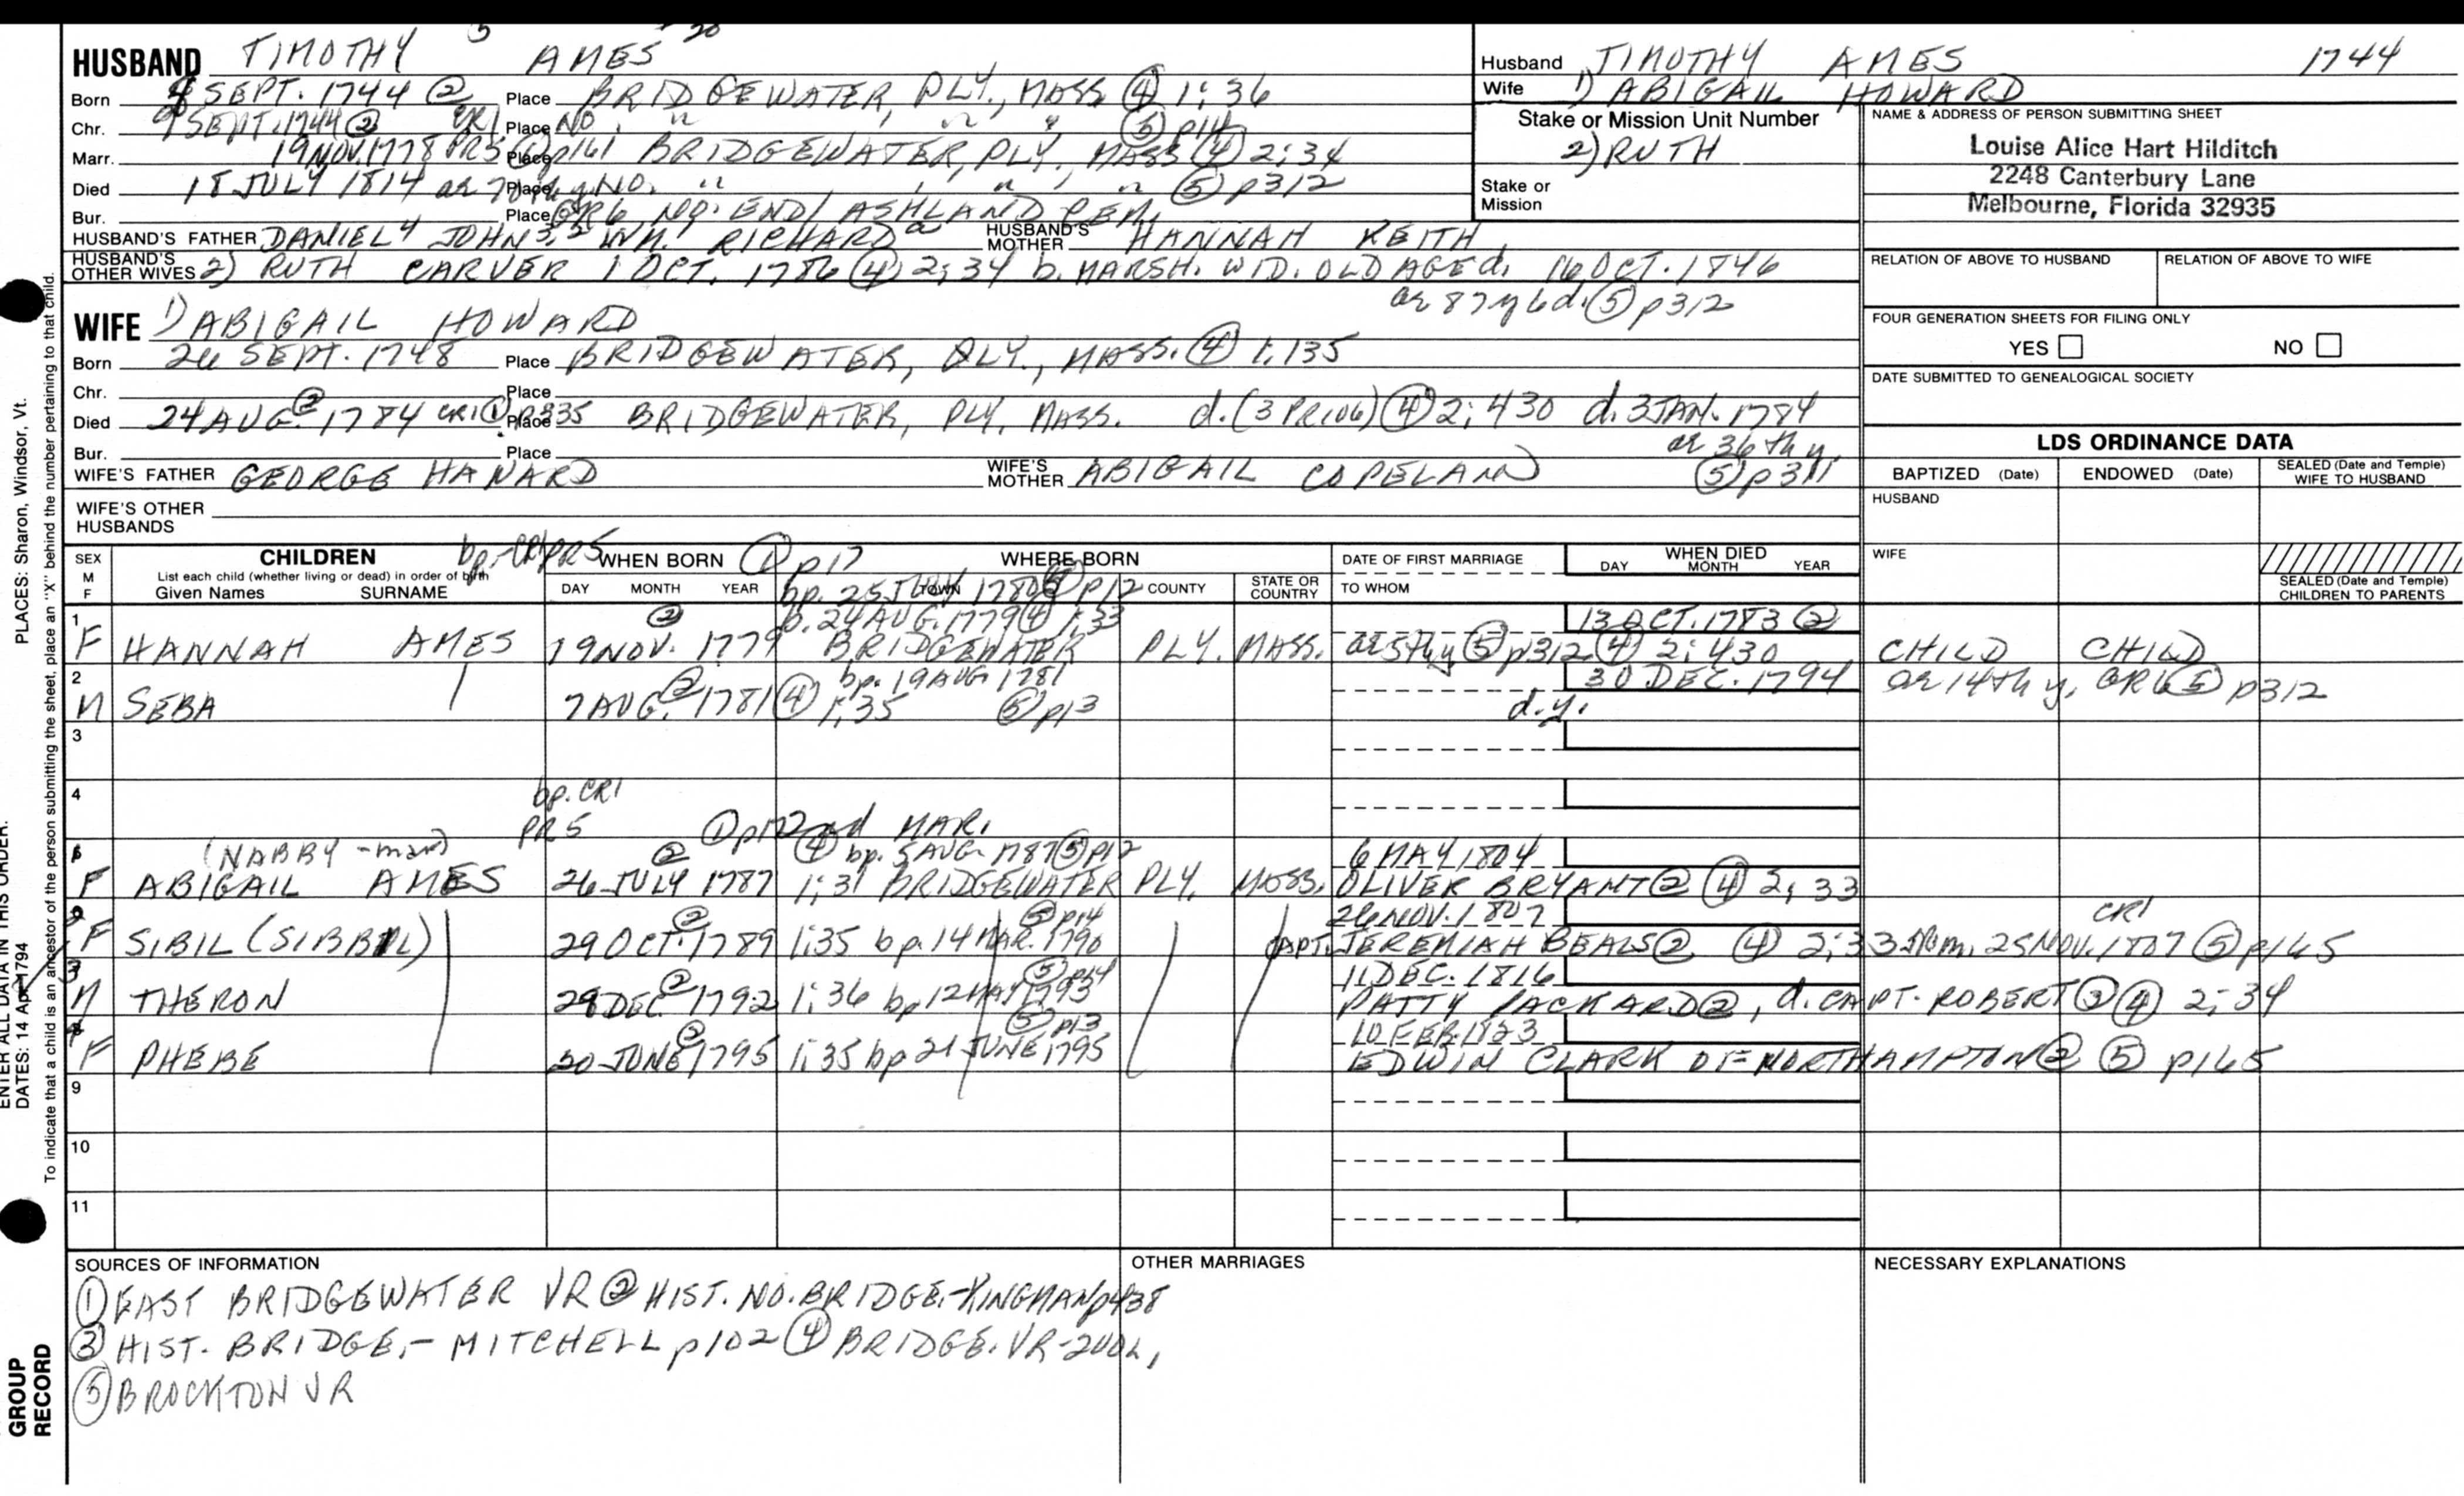 HUSBAND TIMOTHY 5 AMES
Born SEPT. 1744 ② Place BRIDGEWATER, PLY., MASS ④ 1:36
Chr. 9 SEPT. 1744 ② CR1 Place NO. " " " ⑤ p14
Marr. 19 NOV. 1778 PR5 ① Place p161 BRIDGEWATER, PLY. MASS ④ 2:34
Died 18 JULY 1814 ae 70th y Place NO. " " " " ⑤ p312
Bur. Place GR6 NO. END/ ASHLAND CEM.
HUSBAND'S FATHER DANIEL 4 JOHN 3, 2 WM. RICHARD a HUSBAND'S MOTHER HANNAH KEITH
HUSBAND'S OTHER WIVES 2) RUTH CARVER 1 OCT. 1786 ④ 2:34 b. MARSH. WID. OLD AGE d. 16 OCT. 1846
ae 87y 6d. ⑤ p312
WIFE 1) ABIGAIL HOWARD
Born 26 SEPT. 1748 Place BRIDGEWATER, PLY., MASS. ④ 1:135
Chr. Place
Died 24 AUG. ② 1784 CR1 ① p335 Place BRIDGEWATER, PLY, MASS. d. (3 PR106) ④ 2:430 d. 3 JAN. 1784
ae 36th y.
Bur. Place
WIFE'S FATHER GEORGE HANARD WIFE'S MOTHER ABIGAIL COPELAND ⑤ p311
WIFE'S OTHER
HUSBANDS
Husband TIMOTHY AMES 1744
Wife 1) ABIGAIL HOWARD
Stake or Mission Unit Number
2) RUTH
Stake or
Mission
NAME & ADDRESS OF PERSON SUBMITTING SHEET
Louise Alice Hart Hilditch
2248 Canterbury Lane
Melbourne, Florida 32935
RELATION OF ABOVE TO HUSBAND RELATION OF ABOVE TO WIFE
FOUR GENERATION SHEETS FOR FILING ONLY
YES NO
DATE SUBMITTED TO GENEALOGICAL SOCIETY
LDS ORDINANCE DATA
BAPTIZED (Date) ENDOWED (Date) SEALED (Date and Temple) WIFE TO HUSBAND
HUSBAND
WIFE
SEALED (Date and Temple)
CHILDREN TO PARENTS
SEX
M
F
CHILDREN
List each child (whether living or dead) in order of birth
Given Names SURNAME
bp.-CR1 PR5 WHEN BORN ① p17
DAY MONTH YEAR
WHERE BORN
bp. 25 JUNE 1780 ⑤ p12
TOWN COUNTY STATE OR COUNTRY
DATE OF FIRST MARRIAGE
TO WHOM
WHEN DIED
DAY MONTH YEAR
1 ② b. 24 AUG. 1779 ④ 1:33 13 OCT. 1783 ②
F HANNAH AMES 19 NOV. 1779 BRIDGEWATER PLY. MASS. ae 5th y ⑤ p312 ④ 2:430 CHILD CHILD
2 ② bp. 19 AUG 1781 30 DEC. 1794 ae 14th y, GR6 ⑤ p312
M SEBA 7 AUG. 1781 ④ 1:35 ⑤ p13 d.y.
3
4
bp. CR1
PR5 ① p17 2nd MAR.
(NABBY -mar) ② ④ bp. 5 AUG. 1787 ⑤ p12 6 MAY 1804
F ABIGAIL AMES 26 JULY 1787 1:31 BRIDGEWATER PLY. MASS. OLIVER BRYANT ② ④ 2:33
② ⑤ p14 26 NOV. 1807 CR1
F SIBIL (SIBBIL) 29 OCT. 1789 1:35 bp. 14 MAR. 1790 CAPT. JEREMIAH BEALS ② ④ 2:33 m. 25 NOV. 1807 ⑤ p165
② ⑤ p14 11 DEC. 1816
M THERON 29 DEC. 1792 1:36 bp 12 MAY 1793 PATTY PACKARD ②, d. CAPT. ROBERT ③ ④ 2:34
② ⑤ p13 10 FEB. 1823
F PHEBE 20 JUNE 1795 1:35 bp 21 JUNE 1795 EDWIN CLARK OF NORTHAMPTON ② ⑤ p165
9
10
11
SOURCES OF INFORMATION
① EAST BRIDGEWATER VR ② HIST. NO. BRIDGE.-KINGMAN p438
③ HIST. BRIDGE.- MITCHELL p102 ④ BRIDGE. VR-2 VOL.
⑤ BROCKTON VR
OTHER MARRIAGES
NECESSARY EXPLANATIONS
ENTER ALL DATA IN THIS ORDER.
DATES: 14 Apr 1794
PLACES: Sharon, Windsor, Vt.
To indicate that a child is an ancestor of the person submitting the sheet, place an "X" behind the number pertaining to that child.
GROUP
RECORD